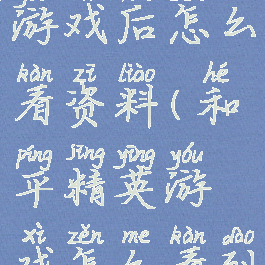 游戏后怎么
kàn zī liào hé
看资料(和
píng jīng yīng yóu
平精英游
xì zěn me kàn dào
戏怎么看到